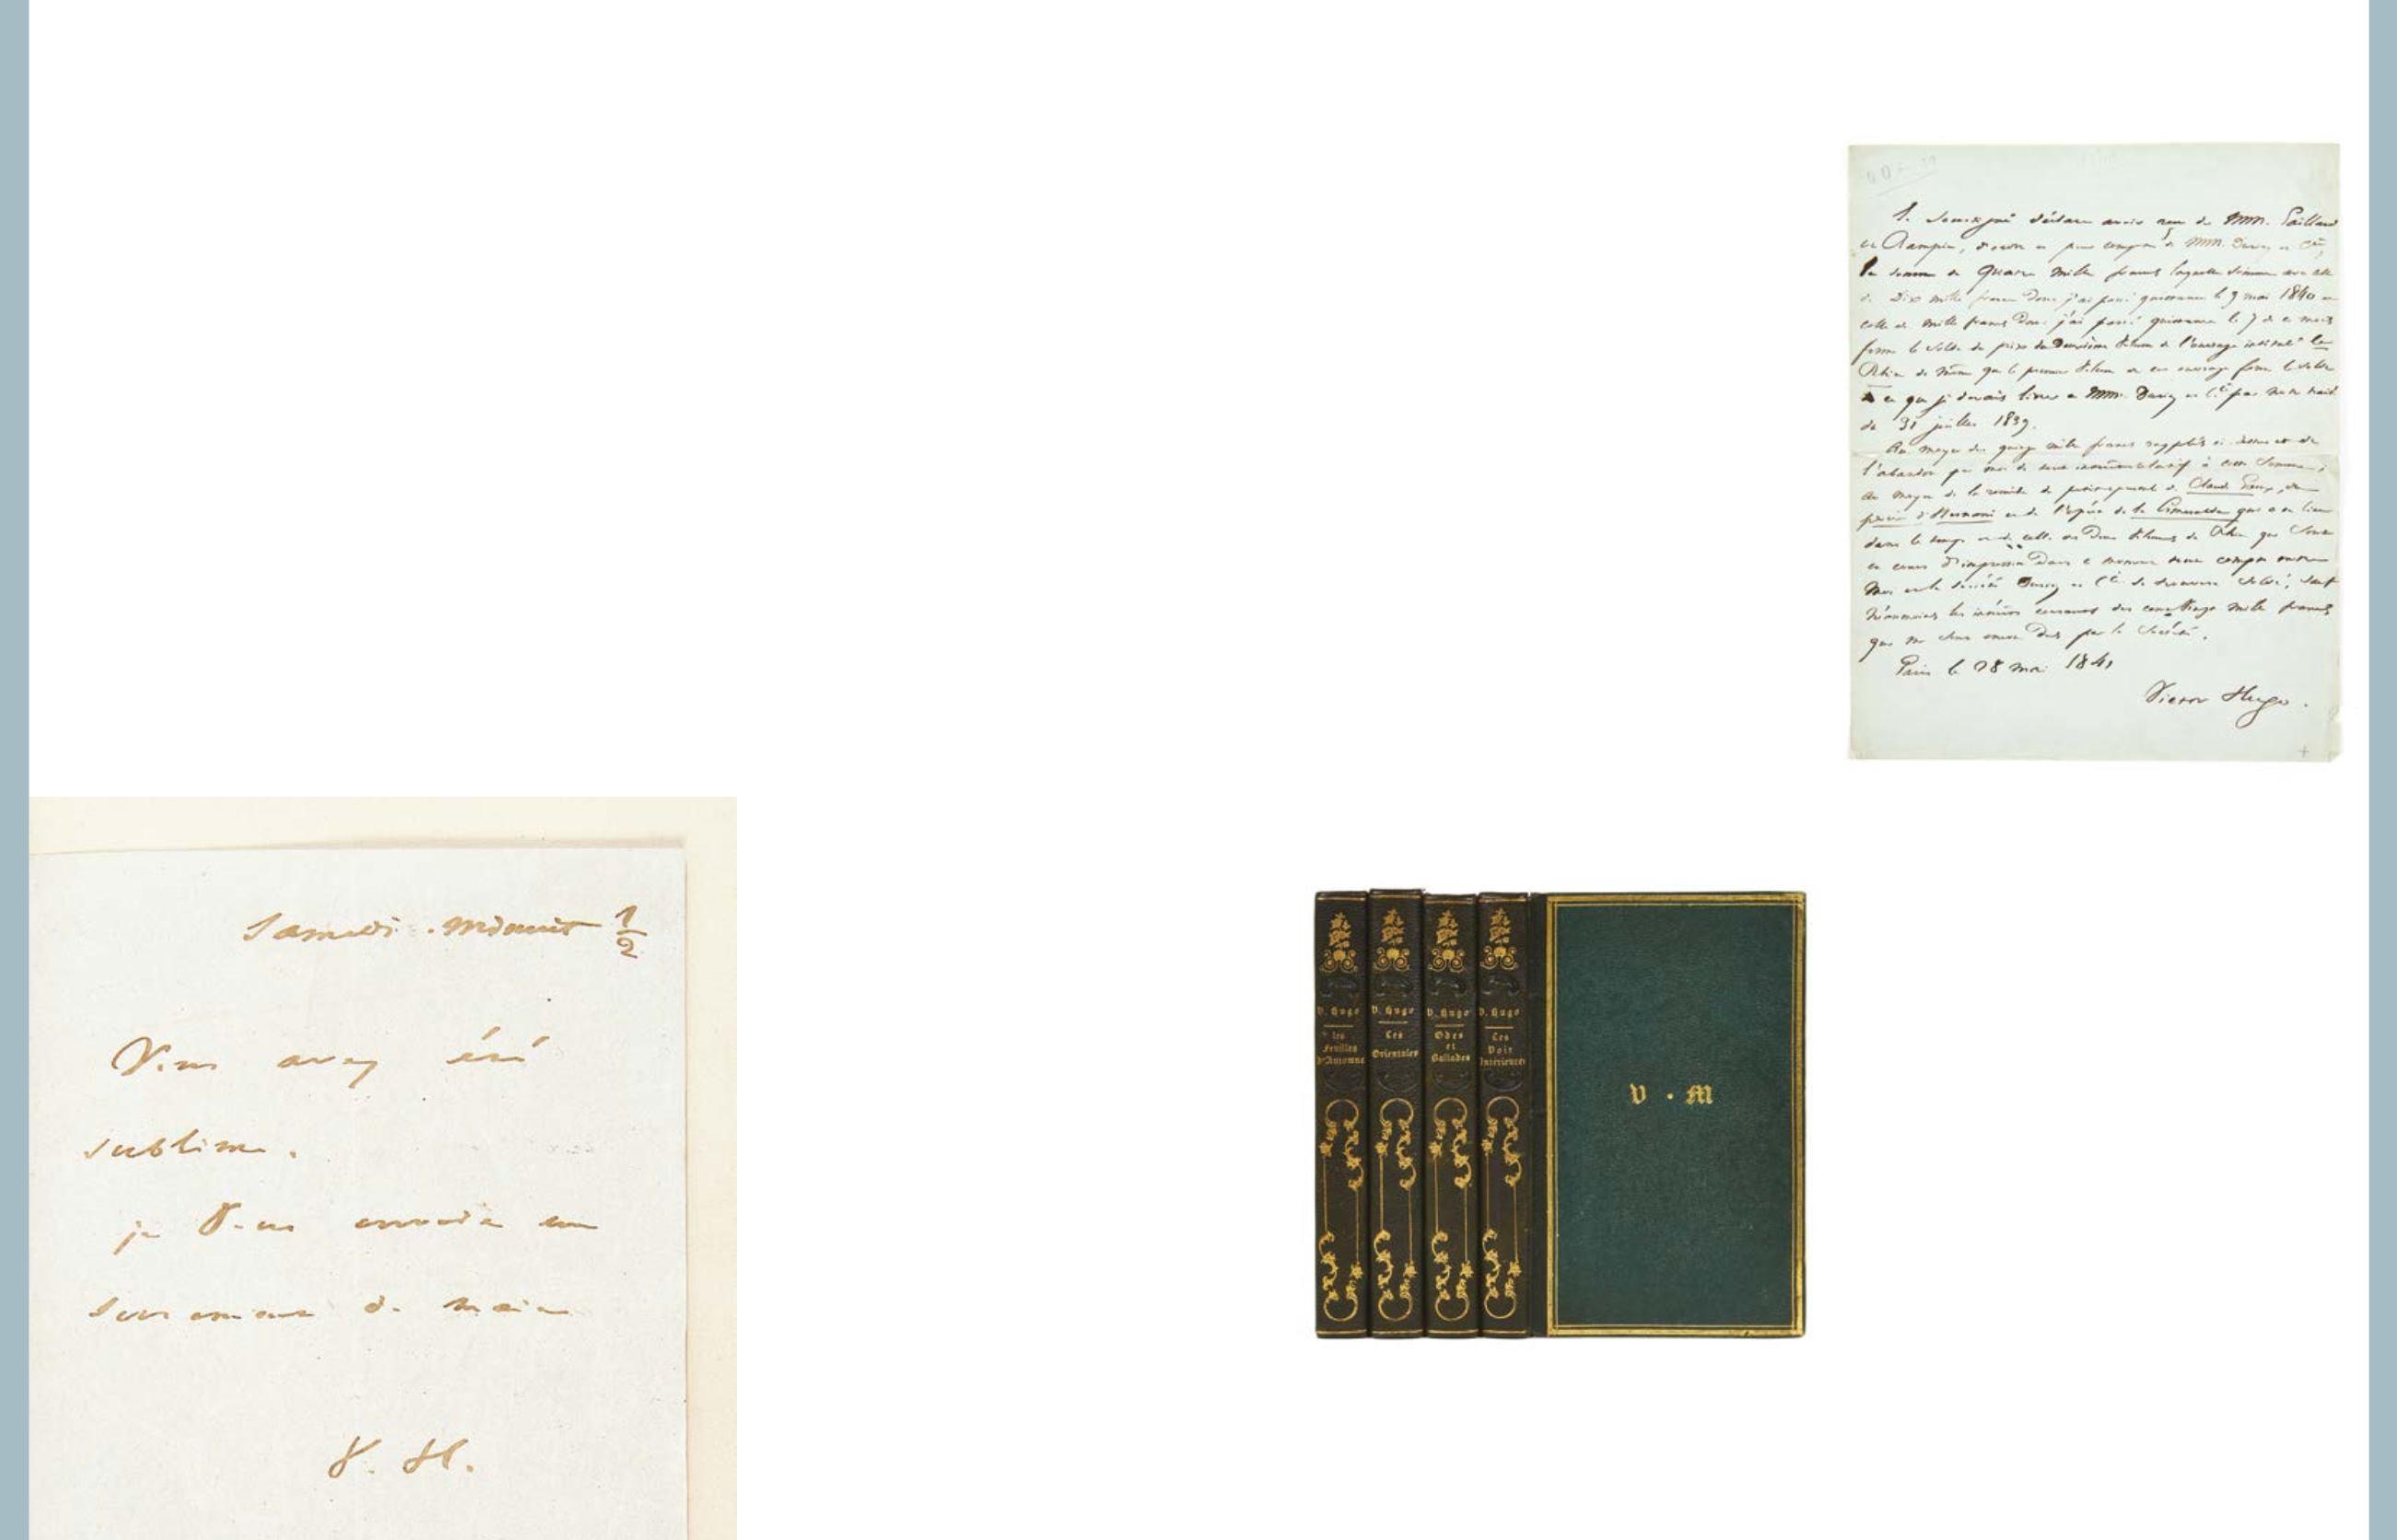 Je soussigné déclare avoir reçu de MM. Paillard
et Rampin, d'ordre et pour compte de MM. Duriez et Cie,
la somme de Quatre mille francs laquelle somme avec celle
de Dix mille francs dont j'ai passé quittance le 9 mai 1840 et
celle de mille francs dont j'ai passé quittance le 7 de ce mois
forme le solde du prix du Deuxième volume de l'ouvrage intitulé le
Rhin de même que le premier volume de cet ouvrage forme le solde
de ce que je devais livrer à MM. Duriez et Cie par notre traité
du 31 juillet 1839.
Au moyen des quinze mille francs rappelés ci-dessus et de
l'abandon par moi de à cette somme,
au moyen de la remise de de Claude Gueux, de
d'Hernani et de de la Esmeralda qui a eu lieu
dans le temps et de celle des Deux volumes du Rhin qui sont
en cours d'impression Dans ce moment tout compte entre
moi et la société Duriez et Cie se trouve soldé, sauf
néanmoins les intérêts courants des mille francs
qui me sont encore dus par la société.
Paris le 28 mai 1841
Victor Hugo.
Samedi. minuit 1/2
Vous avez été
sublime.
je vous envoie un
serrement de main
V. H.
V. Hugo
Les
Feuilles
d'Automne
V. Hugo
Les
Orientales
V. Hugo
Odes
et
Ballades
V. Hugo
Les
Voix
Intérieures
V · M